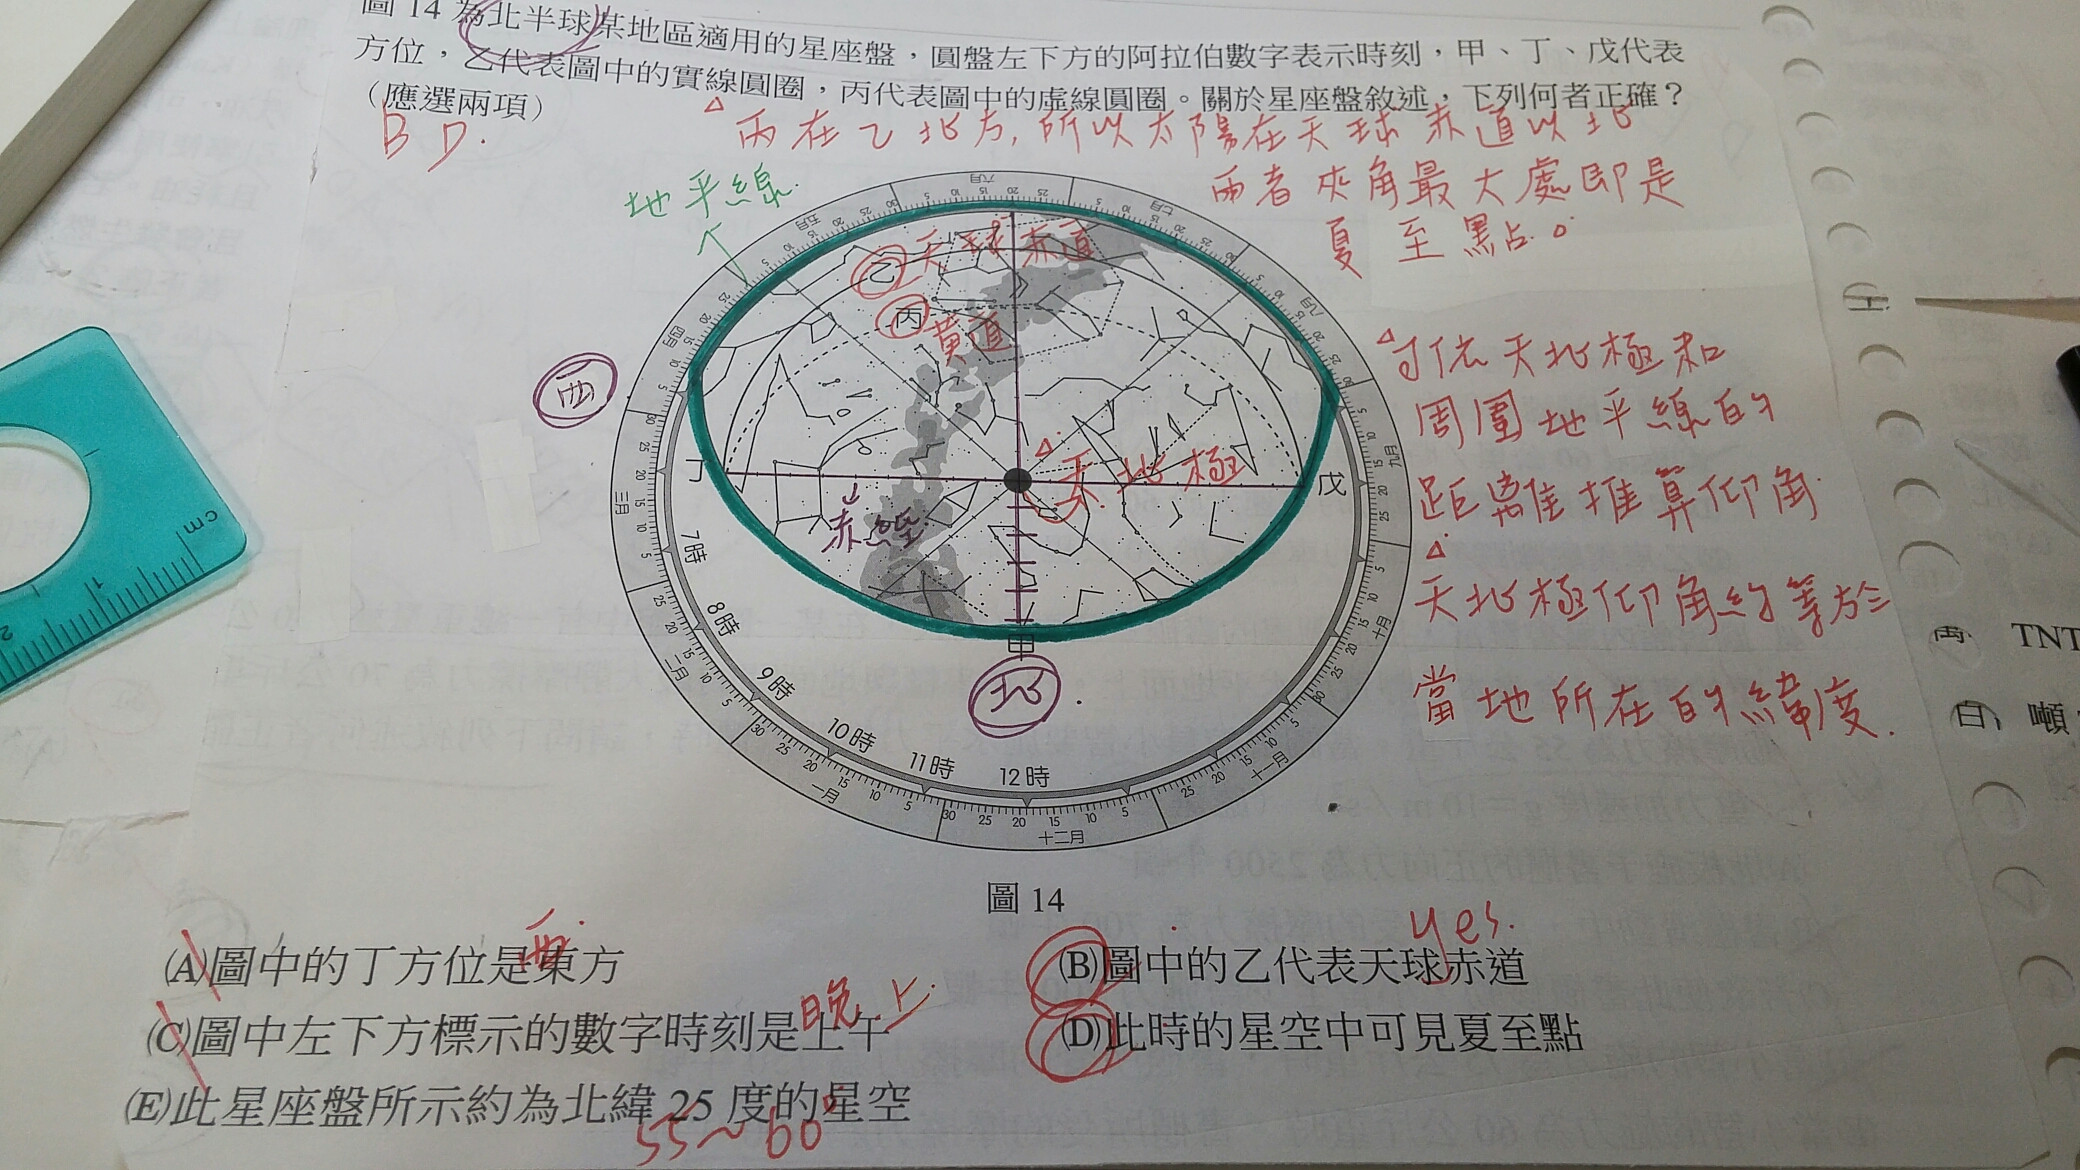 圖 14 為北半球某地區適用的星座盤，圓盤左下方的阿拉伯數字表示時刻，甲、丁、戊代表
方位，乙代表圖中的實線圓圈，丙代表圖中的虛線圓圈。關於星座盤敘述，下列何者正確？
（應選兩項）
B D.
丙在乙北方，所以太陽在天球赤道以北
兩者夾角最大處即是
夏至點。
地平線
乙 天球赤道
丙
黃道
西
可依天北極和
周圍地平線的
距離推算仰角
天北極仰角約等於
當地所在的緯度.
天北極
丁
戊
赤經
甲
北
7時
8時
9時
10時
11時
12時
六月
七月
八月
九月
十月
十一月
十二月
一月
二月
三月
四月
五月
圖 14
西
(A)圖中的丁方位是東方
yes.
(B)圖中的乙代表天球赤道
晚上
(C)圖中左下方標示的數字時刻是上午
(D)此時的星空中可見夏至點
(E)此星座盤所示約為北緯 25 度的星空
55~60°
cm
1
2
TNT
噸